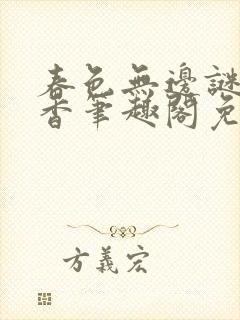 春色無邊謎
香筆趣閣免
方義宏